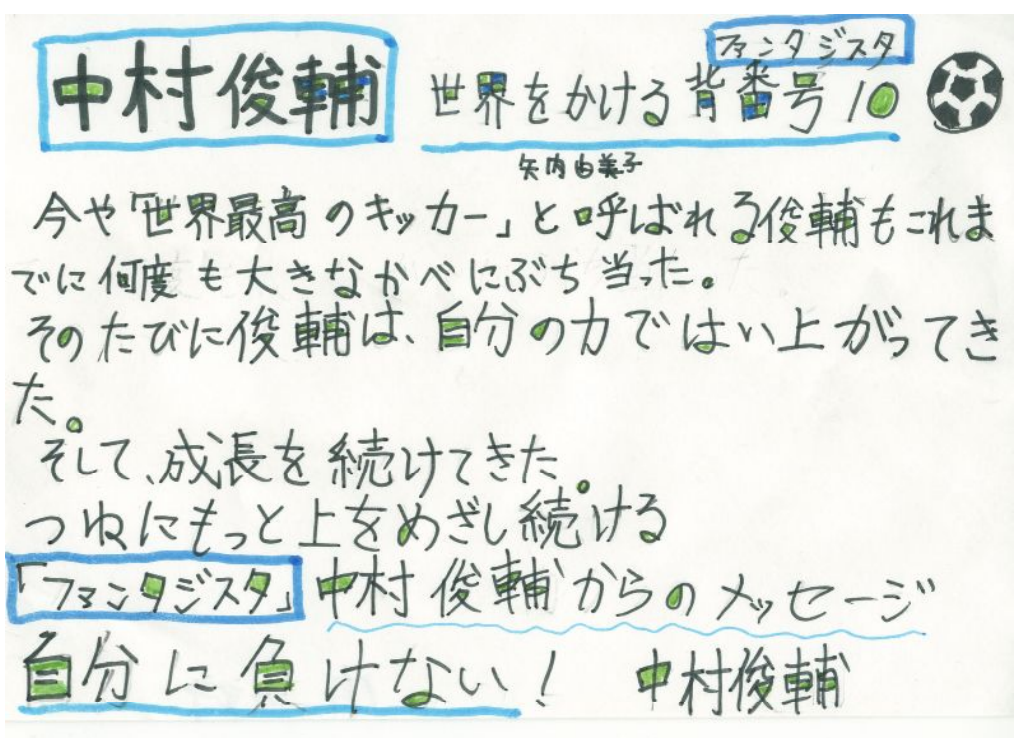 中村俊輔 世界をかける背番号10
ファンタジスタ
矢内由美子
今や「世界最高のキッカー」と呼ばれる俊輔もこれま
でに何度も大きなかべにぶち当った。
そのたびに俊輔は、自分の力ではい上がってき
た。
そして、成長を続けてきた。
つねにもっと上をめざし続ける
「ファンタジスタ」中村俊輔からのメッセージ
自分に負けない! 中村俊輔